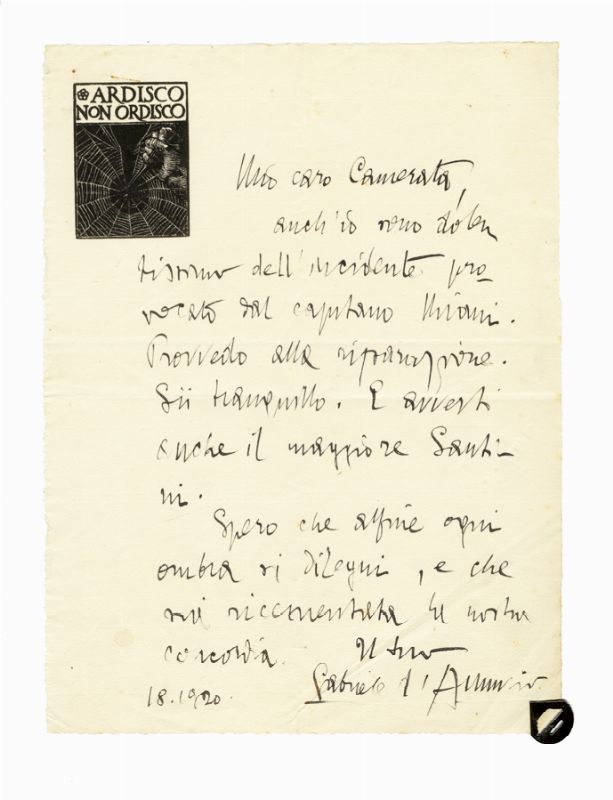 ARDISCO
NON ORDISCO
Mio caro Camerata,
anch'io sono dolen
tissimo dell'incidente pro
vocato dal capitano Miani.
Provvedo alla riparazione.
Sii tranquillo. E avverti
anche il maggiore Santi-
ni.
Spero che alfine ogni
ombra si dilegui, e che
sia ricementata la nostra
concordia. Il tuo
18.1920. Gabriele d'Annunzio